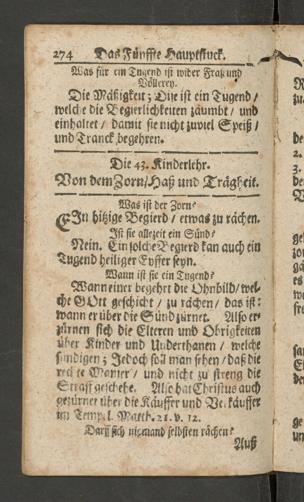 274 Das Fünffte Hauptstuck.
Was für ein Tugend ist wider Fraß und
Völlerey.
Die Mäßigkeit; Dise ist ein Tugend /
welche die Begierlichkeiten zäumbt / und
einhaltet / damit sie nicht zuviel Speiß /
und Tranck begehren.
Die 43. Kinderlehr.
Von dem Zorn / Haß und Trägheit.
Was ist der Zorn?
Ein hitzige Begierd / etwas zu rächen.
Ist sie allezeit ein Sünd?
Nein. Ein solche Begierd kan auch ein
Tugend heiliger Eyffer seyn.
Wann ist sie ein Tugend?
Wann einer begehrt die Ohnbild / wel-
che GOtt geschicht / zu rächen / das ist:
wann er über die Sünd zürnet. Also er-
zürnen sich die Elteren und Obrigkeiten
über Kinder und Underthanen / welche
sündigen; Jedoch soll man sehen / daß die
rechte Manier / und nicht zu streng die
Straff geschehe. Also hat Christus auch
gezürnet über die Käuffer und Verkäuffer
im Tempel. Matth. 21. v. 12.
Darff sich niemand selbsten rächen?
Auß